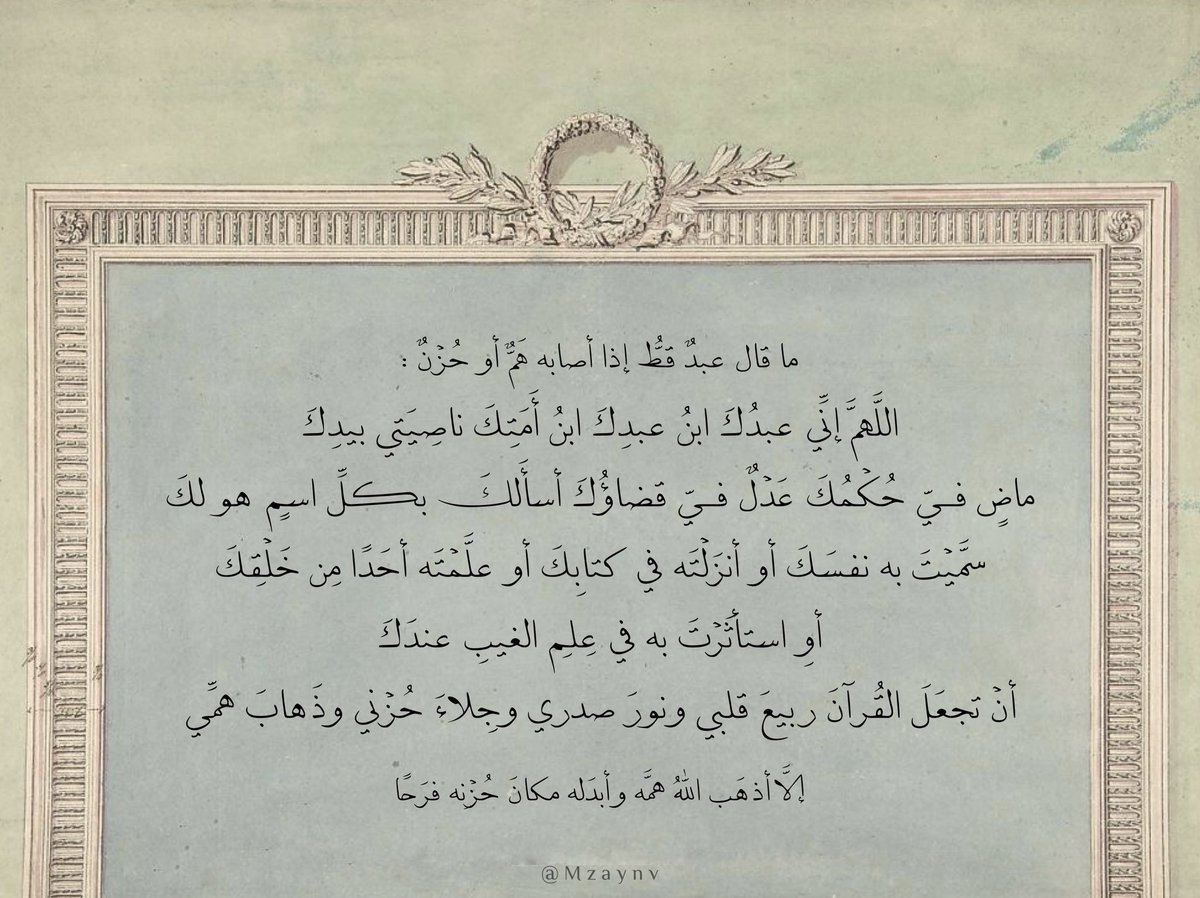 ما قال عبدٌ قطُّ إذا أصابه هَمٌّ أو حُزْنٌ :
اللَّهمَّ إنِّي عبدُكَ ابنُ عبدِكَ ابنُ أَمَتِكَ ناصِيَتي بيدِكَ
ماضٍ فيّ حُكْمُكَ عَدْلٌ فيّ قضاؤُكَ أسأَلُكَ بكلِّ اسمٍ هو لكَ
سمَّيْتَ به نفسَكَ أو أنزَلْتَه في كتابِكَ أو علَّمْتَه أحَدًا مِن خَلْقِكَ
أوِ استأثَرْتَ به في عِلمِ الغيبِ عندَكَ
أنْ تجعَلَ القُرآنَ ربيعَ قلبي ونورَ صدري وجِلاءَ حُزْني وذَهابَ همِّي
إلَّا أذهَب اللهُ همَّه وأبدَله مكانَ حُزْنِه فرَحًا
@Mzaynv